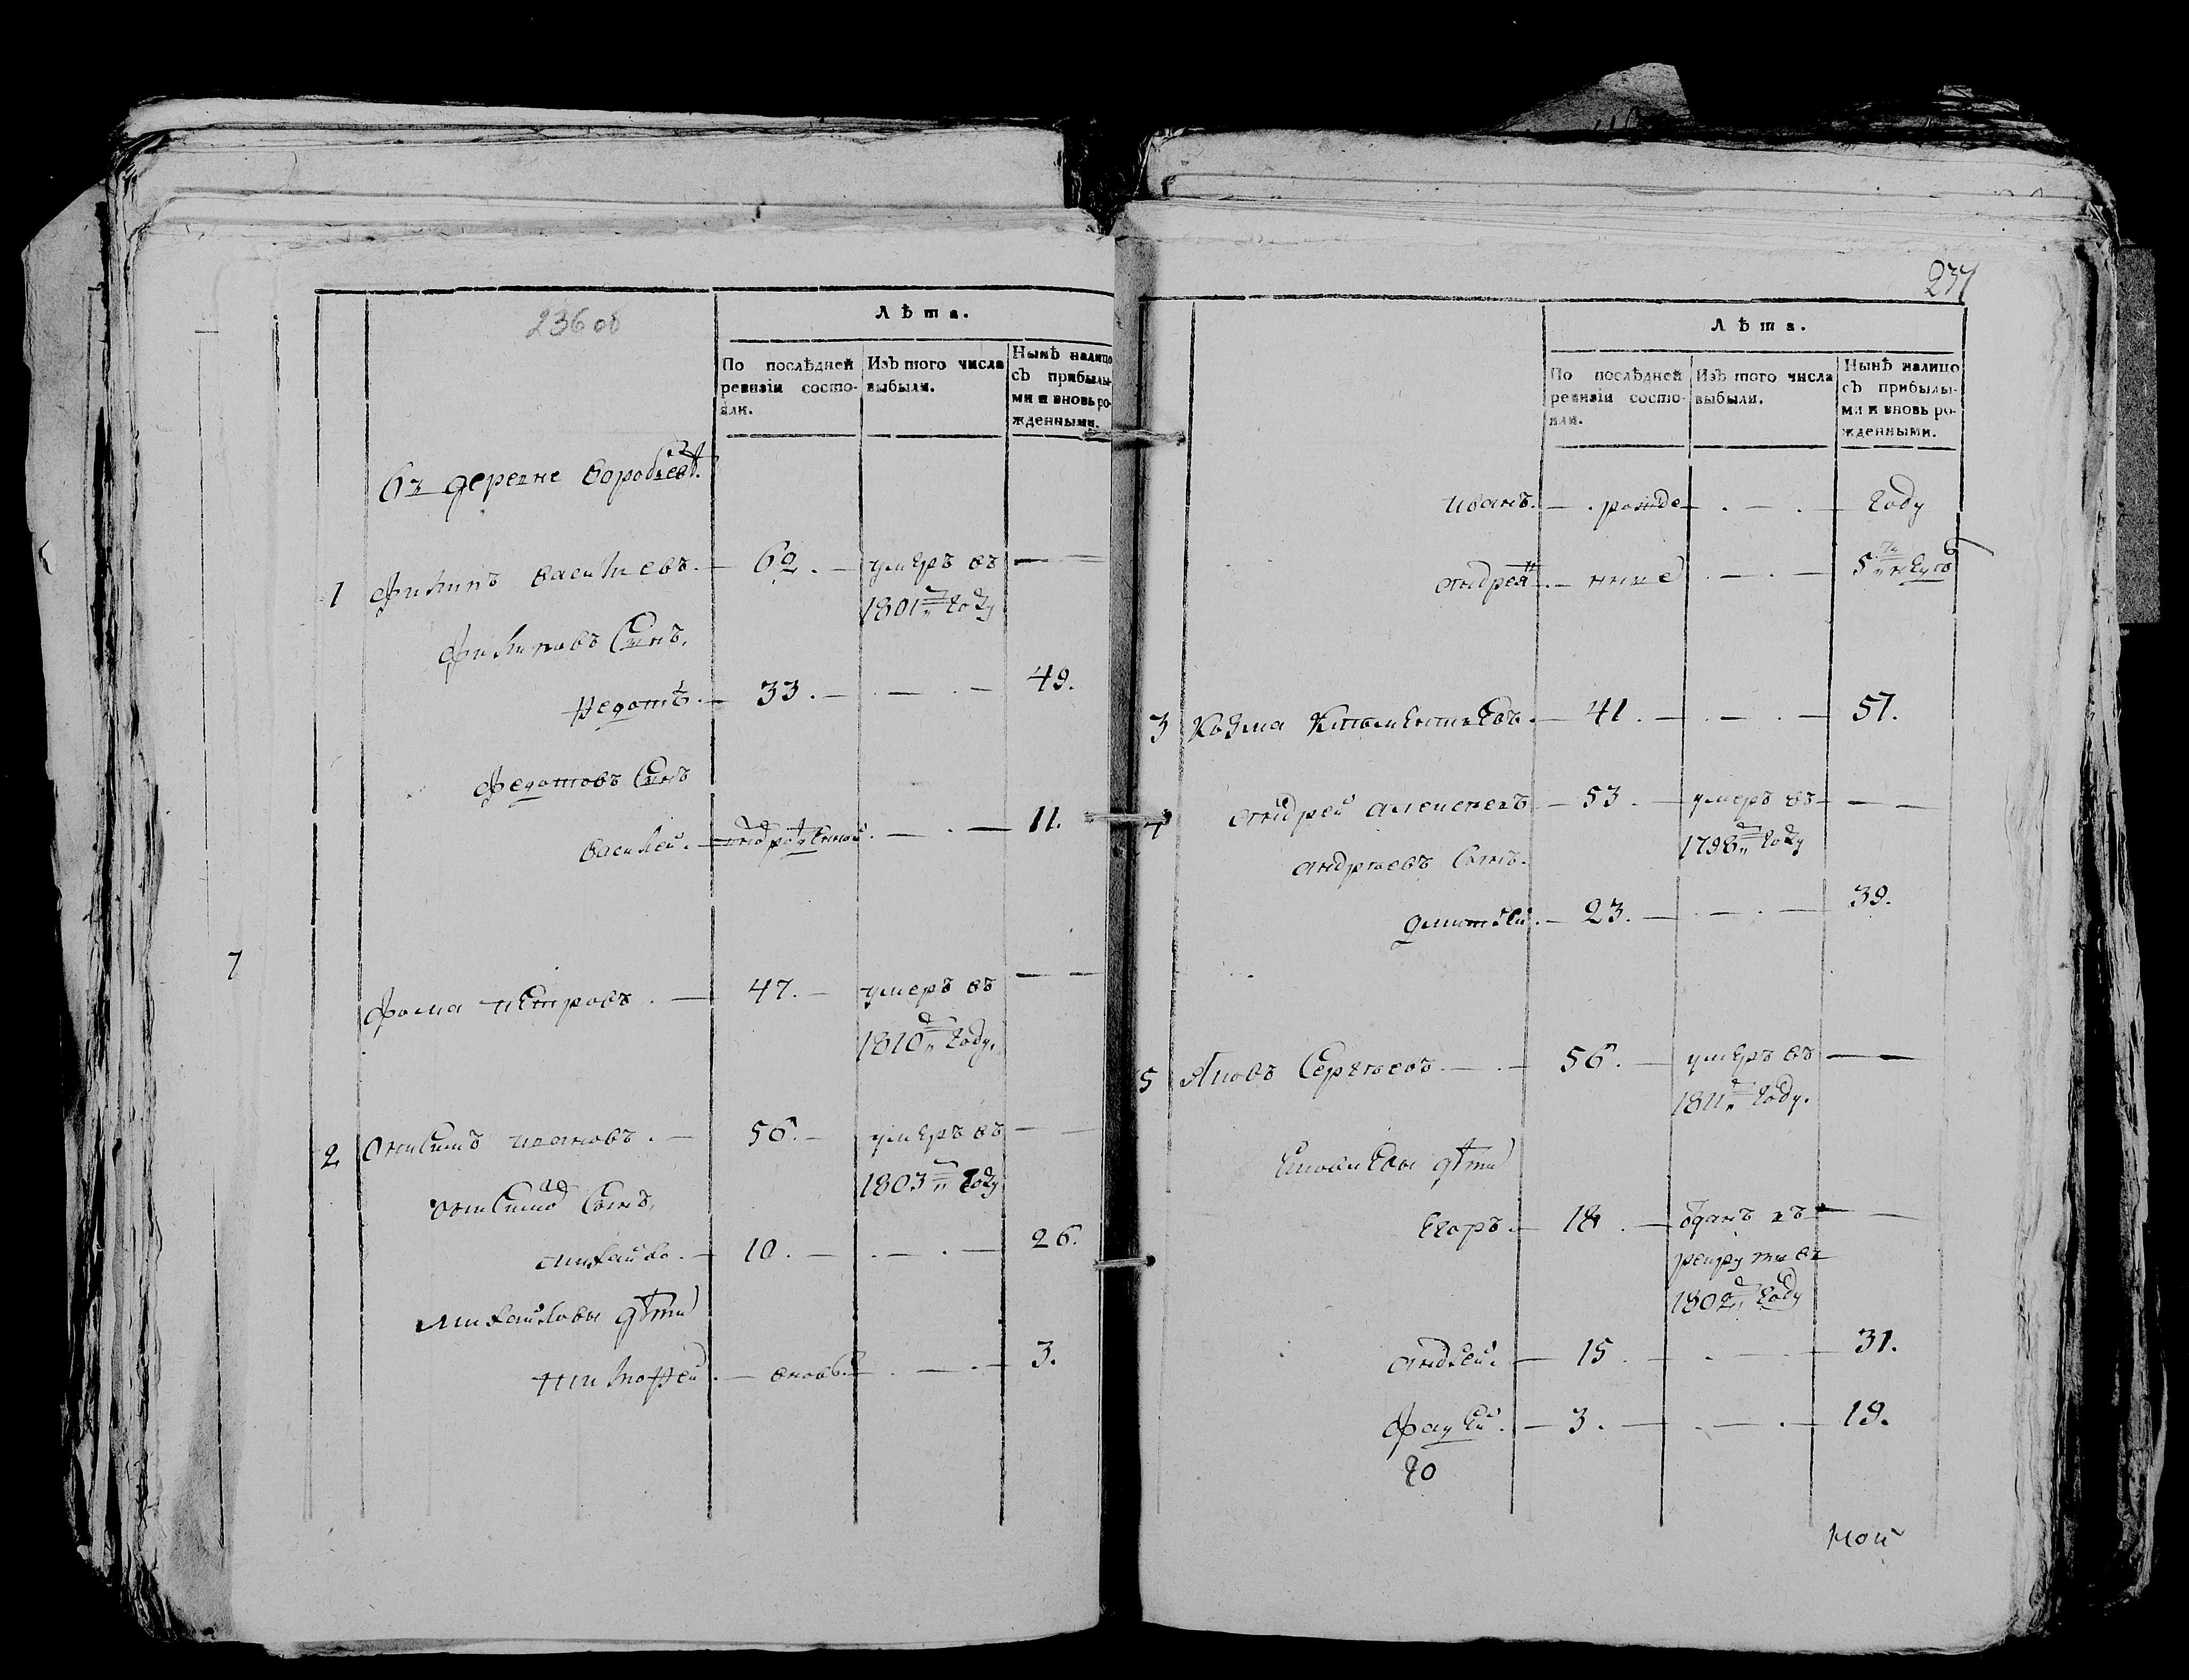 236 об
Лѣта.
По послѣдней ревизіи состояли.
Изъ того числа выбыли.
Нынѣ налицо съ прибылыми и вновь рожденными.
Въ деревне воробьевѣ.
1 Филипъ васильевъ. — 62. — умеръ въ — —
1801м году
Филиповъ Сынъ.
Федотъ. — 33. — . — . — 49.
Федотовъ Сынъ
василей. — . — . — 11.
Фома петровъ. — 47. — умеръ въ — —
1810м году.
2 ивановъ. — 56. — умеръ въ — —
1803м году
Сынъ.
михайло. — 10. — . — . — 26.
михайловы дѣти
тимофей. — вновь — . — . — 3.
7
237
Лѣта.
По послѣдней ревизіи состояли.
Изъ того числа выбыли.
Нынѣ налицо съ прибылыми и вновь рожденными.
иванъ. — . рожде — . — . — году
андрей. — ныне — . — . — 5
3 Козма — 41. — . — . — 57.
4 андрей алексеевъ — 53. — умеръ въ — —
1798м году
андрѣевъ Сынъ.
дмитрей. — 23. — . — . — 39.
5 Яковъ Сергѣевъ. — . — 56. — умеръ въ — —
1811м году.
дѣти
Егоръ. — 18. — отданъ въ — —
рекруты въ
1802м году
андрей. — 15. — . — . — 31.
3. — . — . — 19.